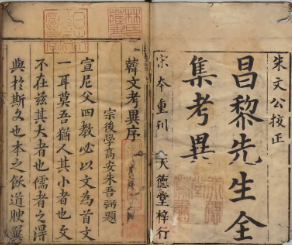 朱文公校正
昌黎先生全
集考異
宋本重刋
天德堂梓行
韓文考異序
宗後學高安朱吾弼題
宣尼父四教必以文為首文
一耳莫吾猶人其小者也文
不在兹其大者也儒者之得
與於斯文也本之飫道腴翼